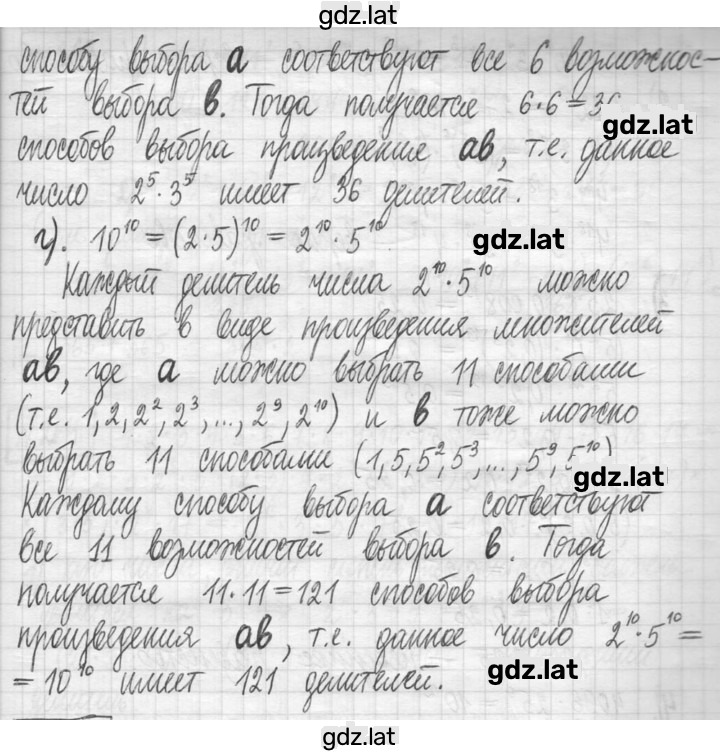 gdz.lat
способу выбора а соответствуют все 6 возможнос-
тей выбора в. Тогда получается 6·6=36
gdz.lat
способов выбора произведения ав, т.е. данное
число 2⁵·3⁵ имеет 36 делителей.
г). 10¹⁰=(2·5)¹⁰=2¹⁰·5¹⁰
gdz.lat
Каждый делитель числа 2¹⁰·5¹⁰ можно
представить в виде произведения множителей
ав, где а можно выбрать 11 способами
(т.е. 1,2,2²,2³,...,2⁹,2¹⁰) и в тоже можно
выбрать 11 способами (1,5,5²,5³,...,5⁹,5¹⁰)
gdz.lat
Каждому способу выбора а соответствуют
все 11 возможностей выбора в. Тогда
получается 11·11=121 способов выбора
произведения ав, т.е. данное число 2¹⁰·5¹⁰=
=10¹⁰ имеет 121 делителей.
gdz.lat
gdz.lat